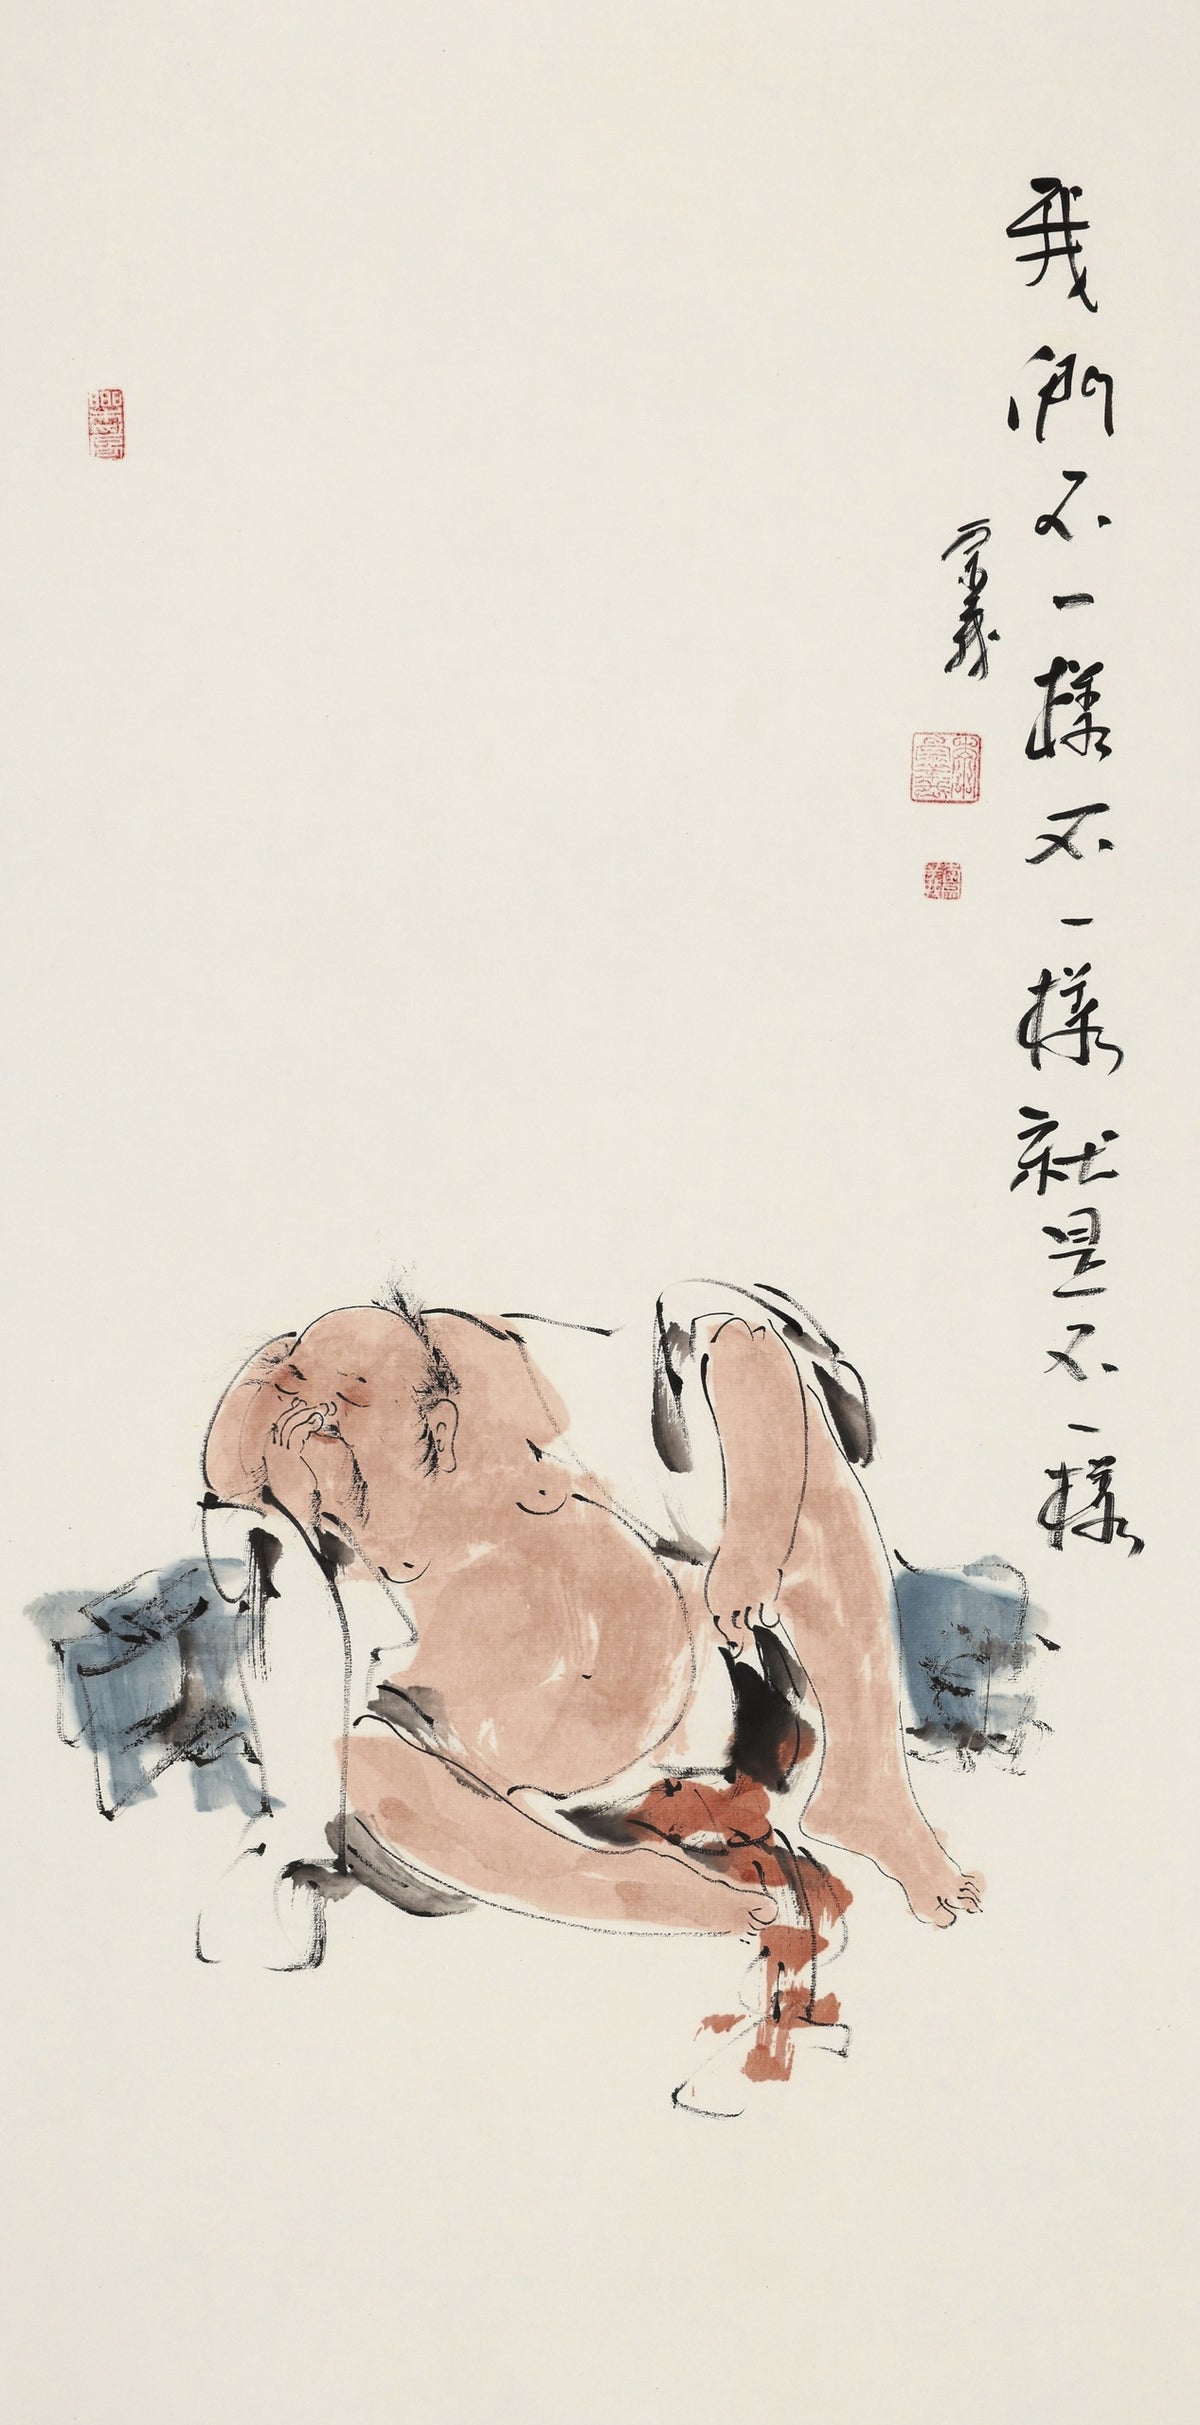 我们不一樣不一樣就是不一樣
崇義